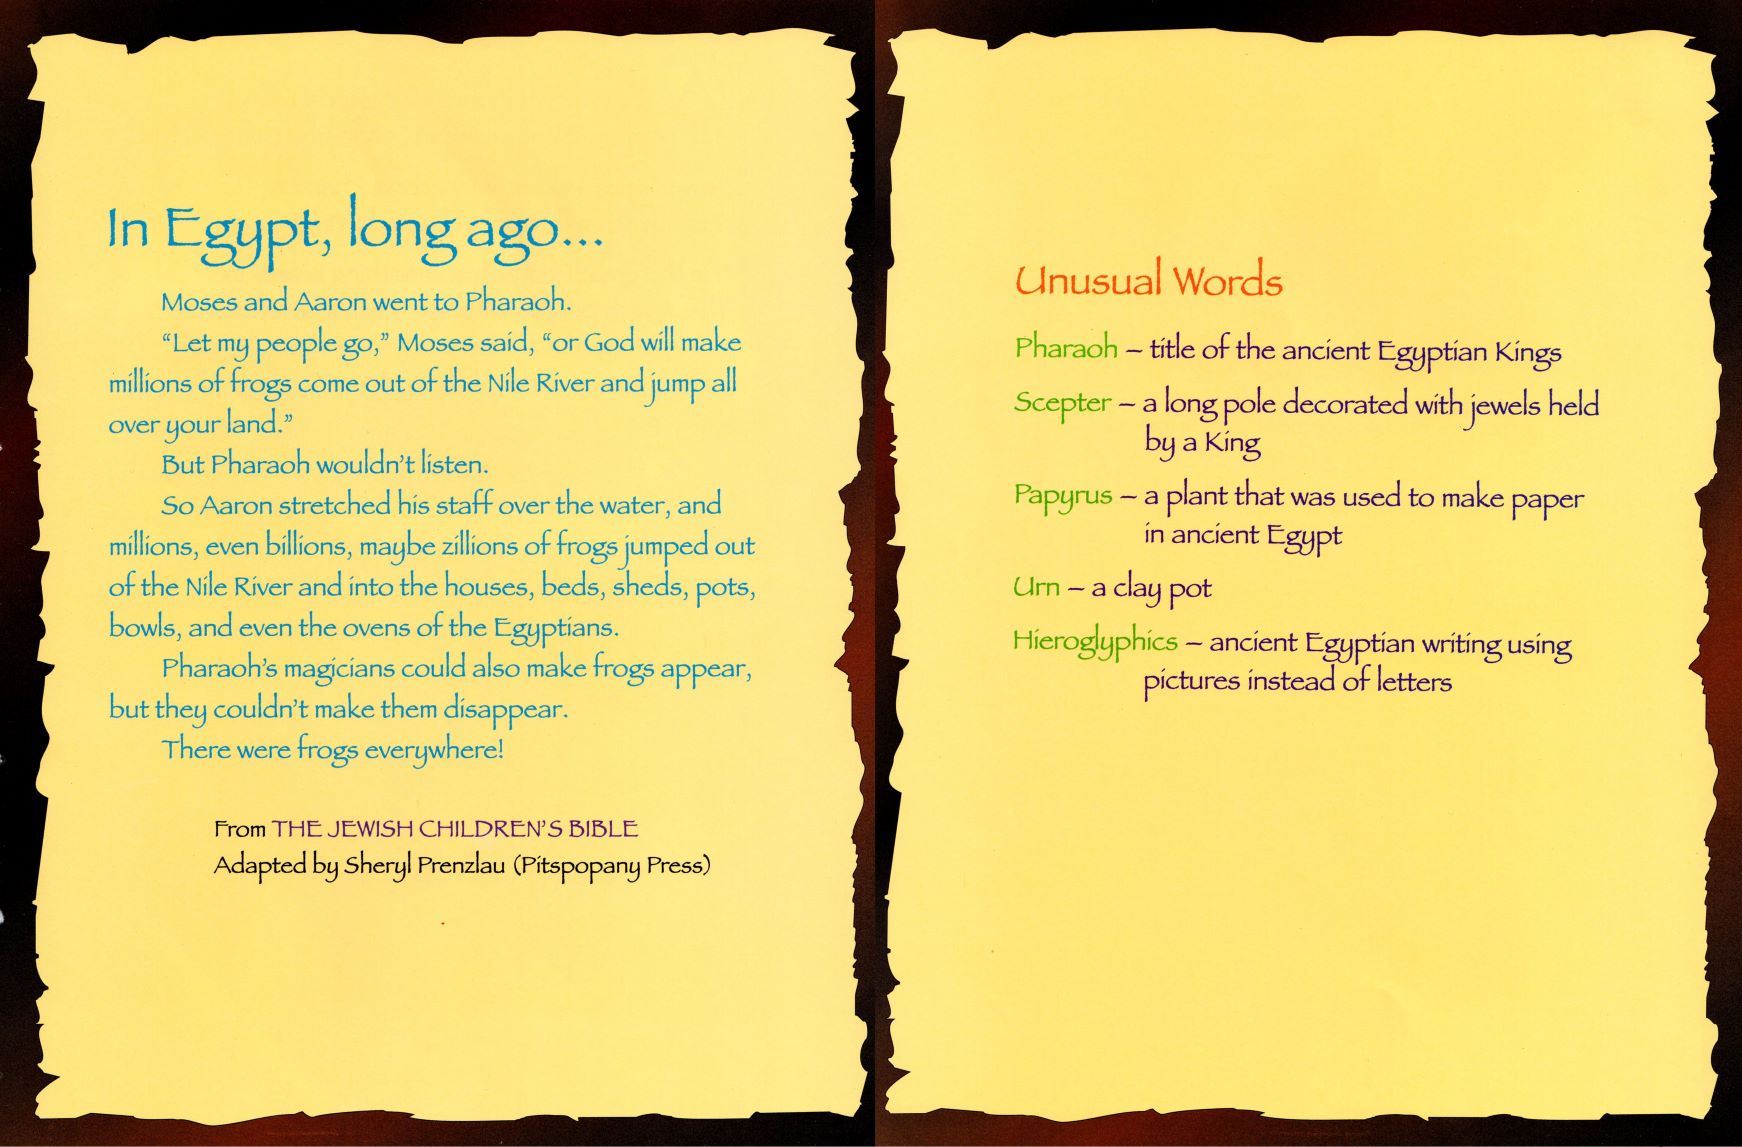 In Egypt, long ago...
Moses and Aaron went to Pharaoh.
“Let my people go,” Moses said, “or God will make
millions of frogs come out of the Nile River and jump all
over your land.”
But Pharaoh wouldn’t listen.
So Aaron stretched his staff over the water, and
millions, even billions, maybe zillions of frogs jumped out
of the Nile River and into the houses, beds, sheds, pots,
bowls, and even the ovens of the Egyptians.
Pharaoh’s magicians could also make frogs appear,
but they couldn’t make them disappear.
There were frogs everywhere!
From THE JEWISH CHILDREN’S BIBLE
Adapted by Sheryl Prenzlau (Pitspopany Press)
Unusual Words
Pharaoh – title of the ancient Egyptian Kings
Scepter – a long pole decorated with jewels held
by a King
Papyrus – a plant that was used to make paper
in ancient Egypt
Urn – a clay pot
Hieroglyphics – ancient Egyptian writing using
pictures instead of letters